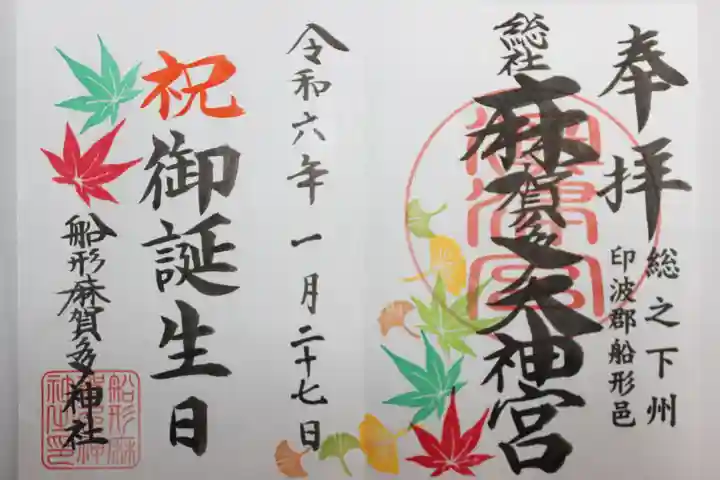 奉拝
総之下州
印波郡船形邑
総社
麻賀多大神宮
令和六年 一月二十七日
祝
御誕生日
船形麻賀多神社